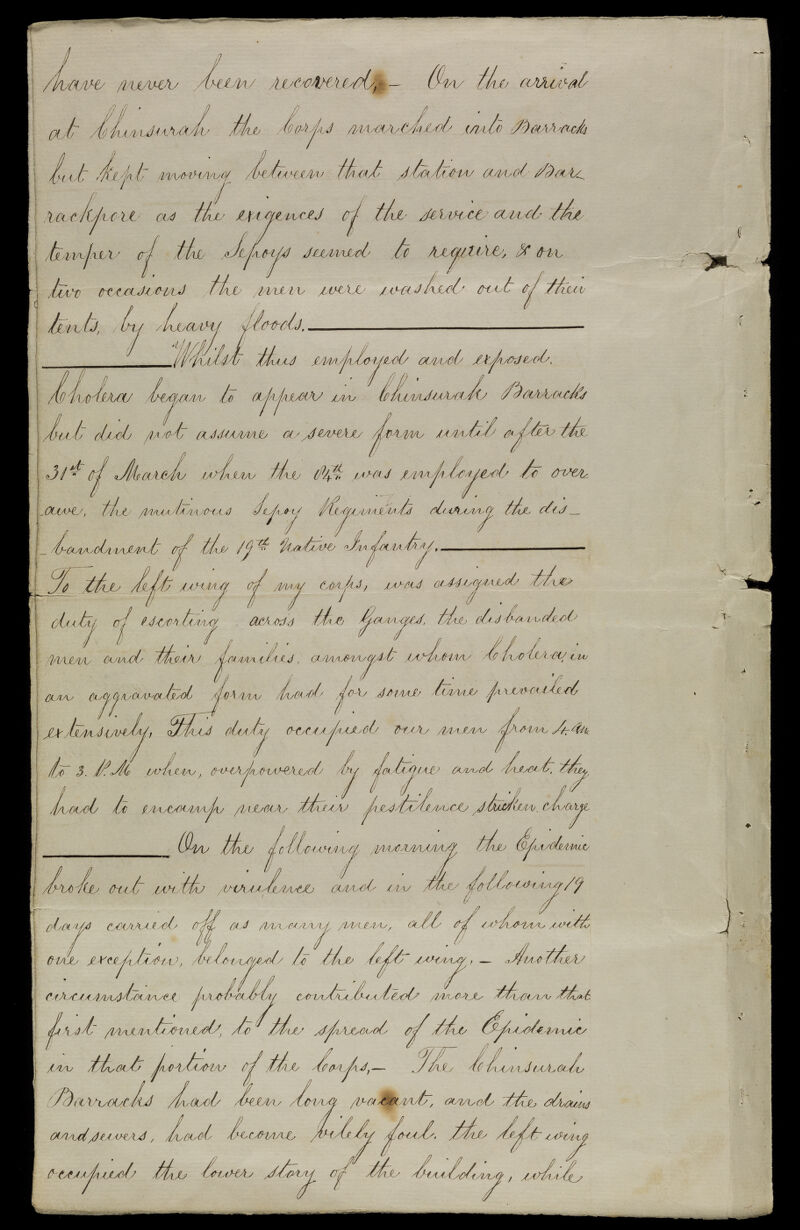 have never been recovered, — On the arrival
at Chinsurah the Corps marched into Barracks
but kept moving between that station and Bar-
rackpore as the exigences of the service and the
temper of the Sepoys seemed to require, & on
two occasions the men were washed out of their
tents, by heavy floods.
Whilst thus employed and exposed.
Cholera began to appear in Chinsurah Barracks
but did not assume a severe form until after the
31st of March when the 84th was employed to over
awe, the mutinous Sepoy Regiments during the dis-
bandment of the 19th Native Infantry.
To the left wing of my corps, was assigned the
duty of escorting across the Ganges, the disbanded
men and their families, amongst whom Cholera, in
an aggravated form had for some time prevailed
extensively, This duty occupied our men from 4. am
to 3. P.M when, overpowered by fatigue and heat, they
had to encamp near their pestilence stricken charge
On the following morning the Epidemic
broke out with virulence and in the following 19
days carried off as many men, all of whom with
one exception, belonged to the left wing. — Another
circumstance probably contributed more than that
first mentioned, to the spread of the Epidemic
in that portion of the Corps, — The Chinsurah
Barracks had been long vacant, and the drains
and sewers, had become vilely foul. the left wing
occupied the lower story of the building, while